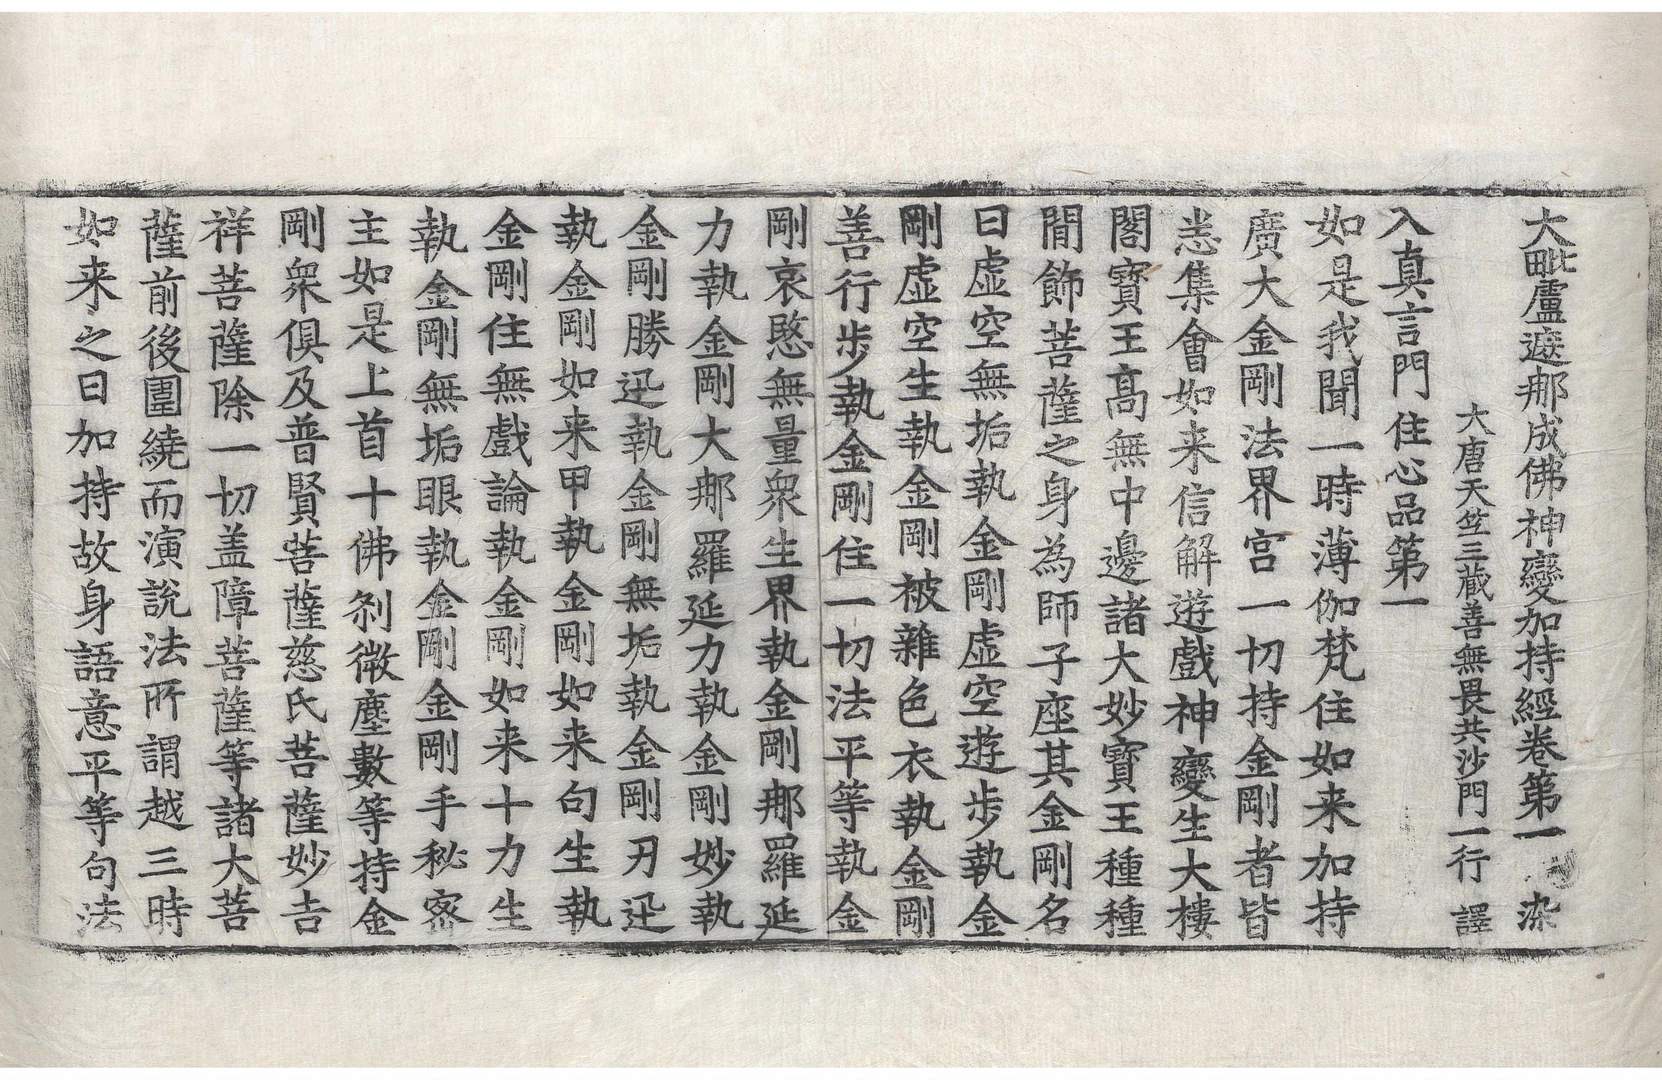 大毗盧遮那成佛神變加持經卷第一　染
大唐天竺三藏善無畏共沙門一行　譯
入真言門住心品第一
如是我聞一時薄伽梵住如来加持
廣大金剛法界宫一切持金剛者皆
悉集會如来信解遊戲神變生大樓
閣寶王高無中邊諸大妙寶王種種
閒飾菩薩之身為師子座其金剛名
曰虚空無垢執金剛虚空遊步執金
剛虚空生執金剛被雜色衣執金剛
善行步執金剛住一切法平等執金
剛哀愍無量衆生界執金剛那羅延
力執金剛大那羅延力執金剛妙執
金剛勝迅執金剛無垢執金剛刃迅
執金剛如来甲執金剛如来句生執
金剛住無戲論執金剛如来十力生
執金剛無垢眼執金剛金剛手秘密
主如是上首十佛剎微塵數等持金
剛衆俱及普賢菩薩慈氏菩薩妙吉
祥菩薩除一切盖障菩薩等諸大菩
薩前後圍繞而演說法所謂越三時
如来之日加持故身語意平等句法